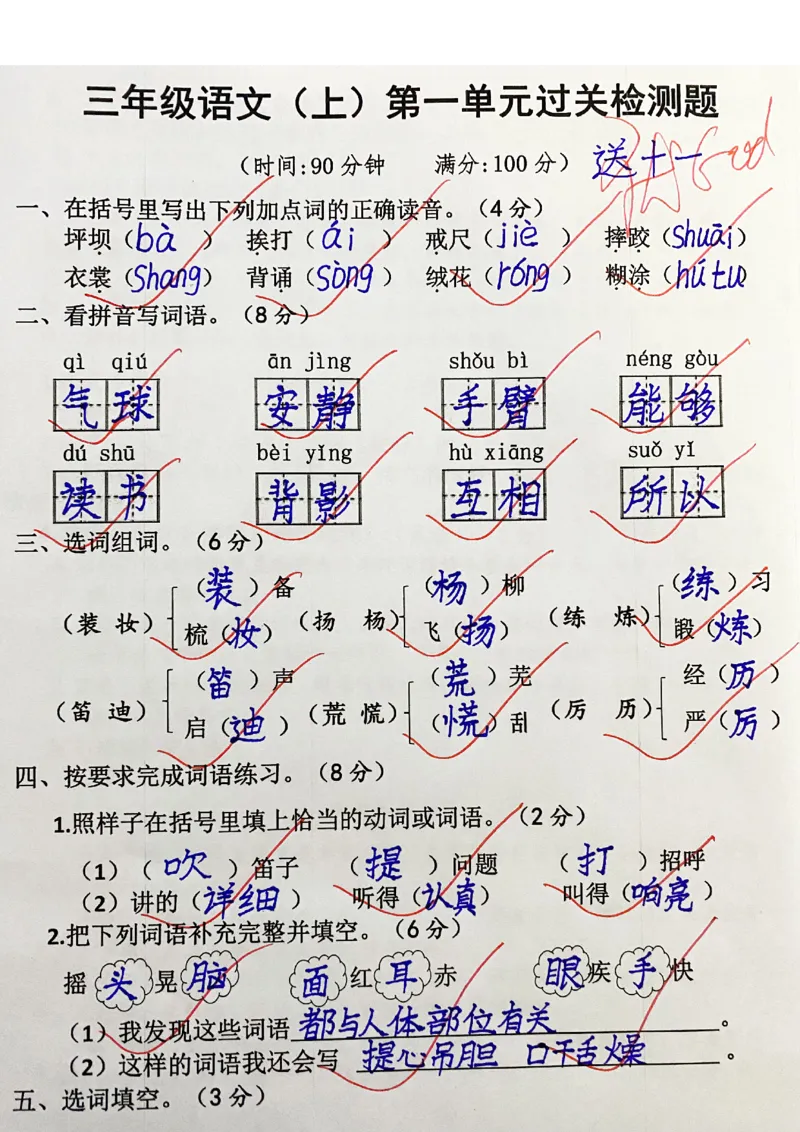 三年级语文（上）第一单元过关检测题
（时间:90分钟 满分:100分） 送十一 Good
一、在括号里写出下列加点词的正确读音。（4分）
坪坝（bà） 挨打（ái） 戒尺（jiè） 摔跤（shuāi）
衣裳（shang） 背诵（sòng） 绒花（róng） 糊涂（hú tu）
二、看拼音写词语。（8分）
qì qiú ān jìng shǒu bì néng gòu
气球 安静 手臂 能够
dú shū bèi yǐng hù xiāng suǒ yǐ
读书 背影 互相 所以
三、选词组词。（6分）
（装）备 （杨）柳 （练）习
（装 妆） （扬 杨） （练 炼）
梳（妆） 飞（扬） 锻（炼）
（笛）声 （荒）芜 经（历）
（笛 迪） （荒 慌） （厉 历）
启（迪） （慌）乱 严（厉）
四、按要求完成词语练习。（8分）
1.照样子在括号里填上恰当的动词或词语。（2分）
（1）（吹）笛子 （提）问题 （打）招呼
（2）讲的（详细） 听得（认真） 叫得（响亮）
2.把下列词语补充完整并填空。（6分）
摇头晃脑 面红耳赤 眼疾手快
（1）我发现这些词语都与人体部位有关。
（2）这样的词语我还会写 提心吊胆 口干舌燥。
五、选词填空。（3分）